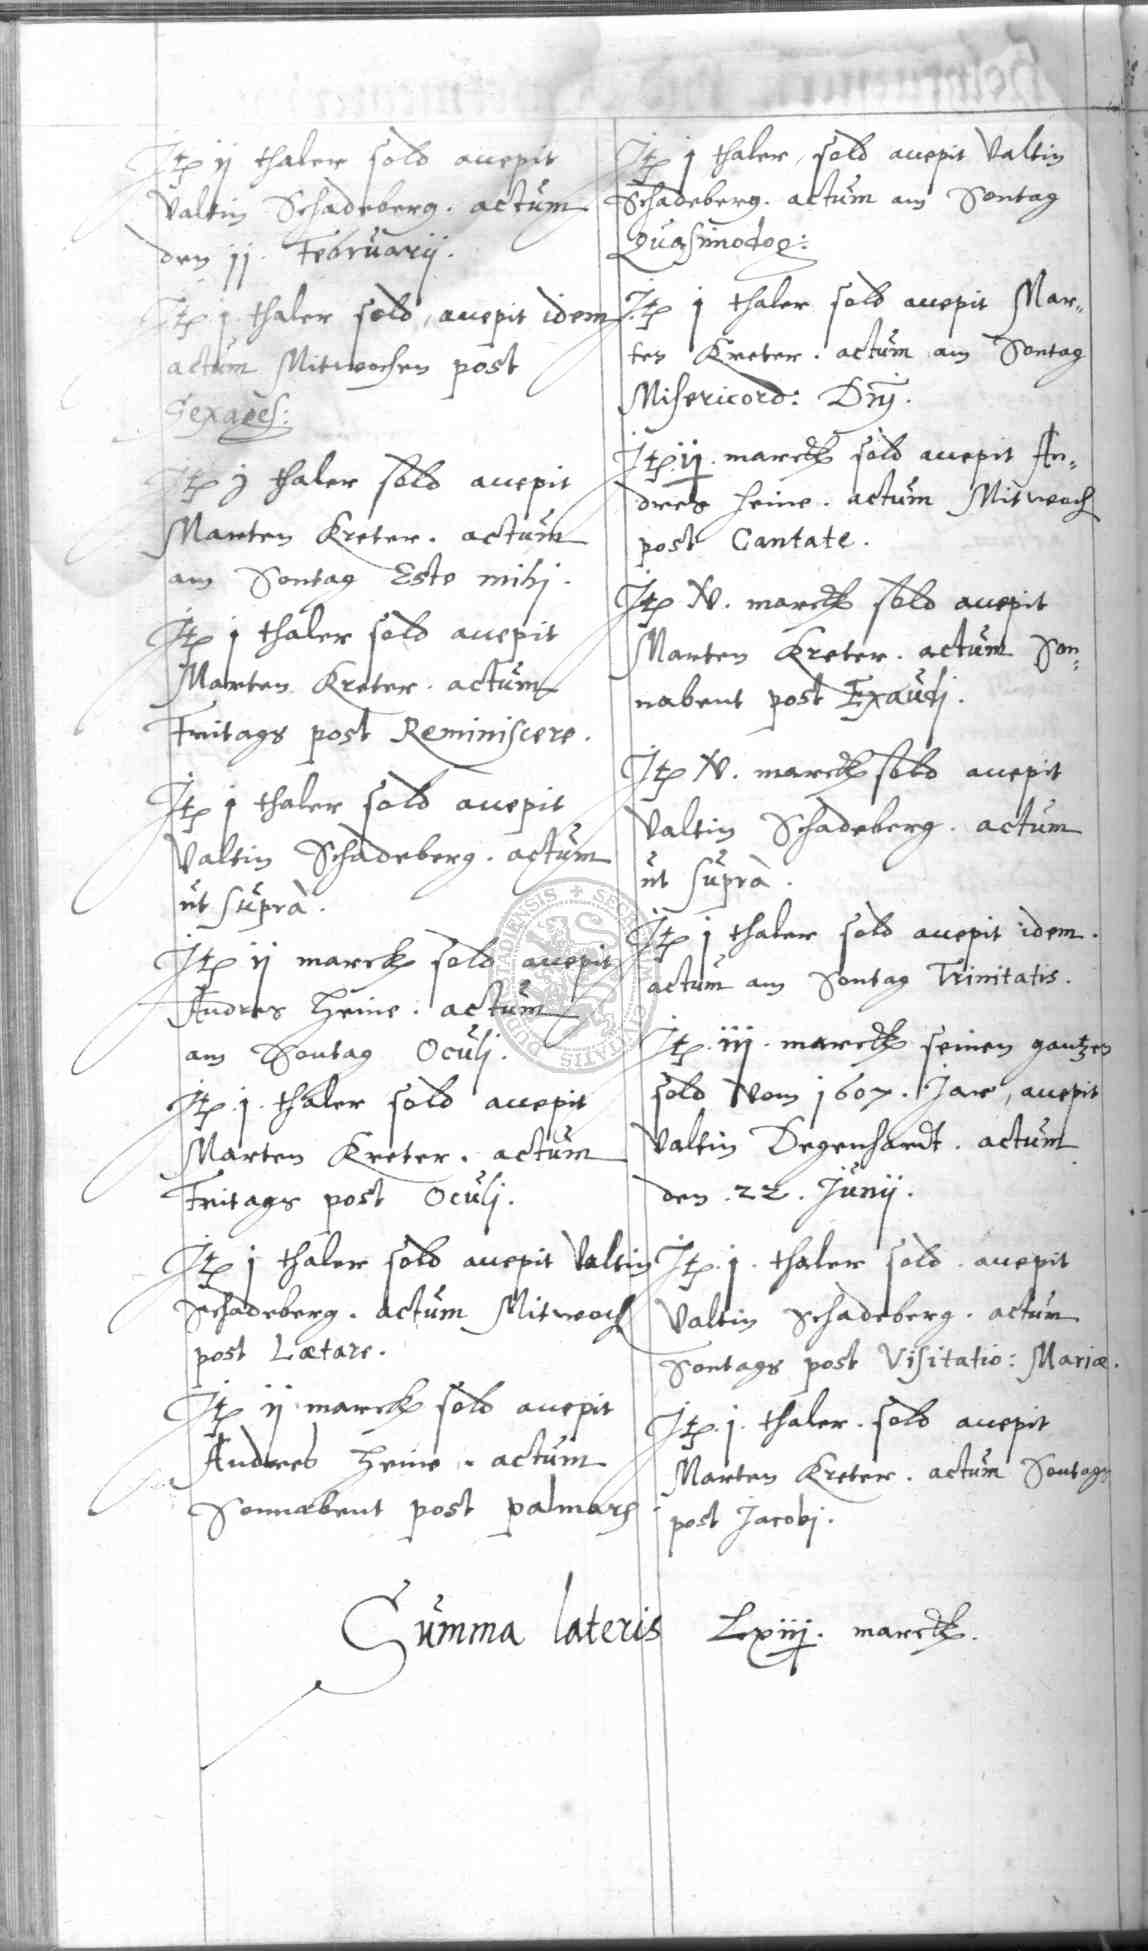 Itp ij thaler sold accepit
Valtin Schadeberg. actum
den 11. Februarij.
Itp j thaler sold, accepit idem
actum Mitwochen post
Sexages:
Itp j thaler sold accepit
Marten Kreter. actum
am Sontag Esto mihj.
Itp j thaler sold accepit
Marten Kreter. actum
Freitags post Reminiscere.
Itp j thaler sold accepit
Valtin Schadeberg. actum
ut suprà.
Itp ij marck sold accepit
Andres Heine. actum
am Sontag Oculj.
Itp. j. thaler sold accepit
Marten Kreter. actum
Freitags post Oculj.
Itp j thaler sold accepit Valtin
Schadeberg. actum Mitwoch
post Lætare.
Itp ij marck sold accepit
Andres Heine. actum
Sonnabent post palmarum
Itp j thaler, sold accepit Valtin
Schadeberg. actum am Sontag
Quasimodog:
Itp j thaler sold accepit Mar-
ten Kreter. actum am Sontag
Misericord: Dnj.
Itp. ij. marck sold accepit An-
dres Heine. actum Mitwoch
post Cantate.
Itp X. marck sold accepit
Marten Kreter. actum Son-
nabent post Exaudj.
Itp X. marck sold accepit
Valtin Schadeberg. actum
ut suprà.
Itp j thaler sold accepit idem.
actum am Sontag Trinitatis.
Itp. iij. marck seinen gantzen
sold vom 1607. Jar, accepit
Valtin Degenhardt. actum
den. 22. Junij.
Itp. j. thaler sold. accepit
Valtin Schadeberg. actum
Sontags post Visitatio: Mariæ.
Itp. j. thaler. sold accepit
Marten Kreter. actum Sontags
post Jacobj.
Summa lateris Lxiij. marck.